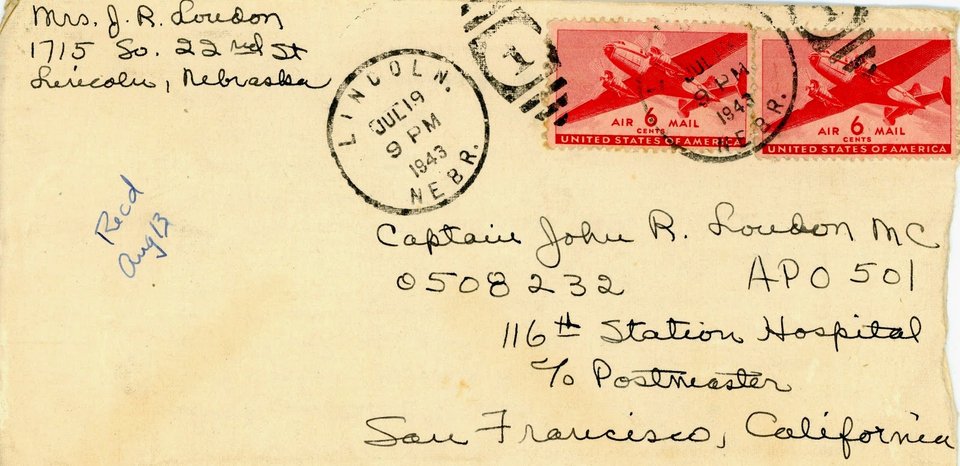 Mrs. J. R. Loudon
1715 So. 22nd St
Lincoln, Nebraska
LINCOLN,
JUL 19
9 PM
1943
NEBR.
1
JUL
9 PM
1943
NEBR.
AIR 6 MAIL
CENTS
UNITED STATES OF AMERICA
AIR 6 MAIL
CENTS
UNITED STATES OF AMERICA
Rec'd
Aug 13
Captain John R. Loudon MC
0508232 APO 501
116th Station Hospital
c/o Postmaster
San Francisco, California